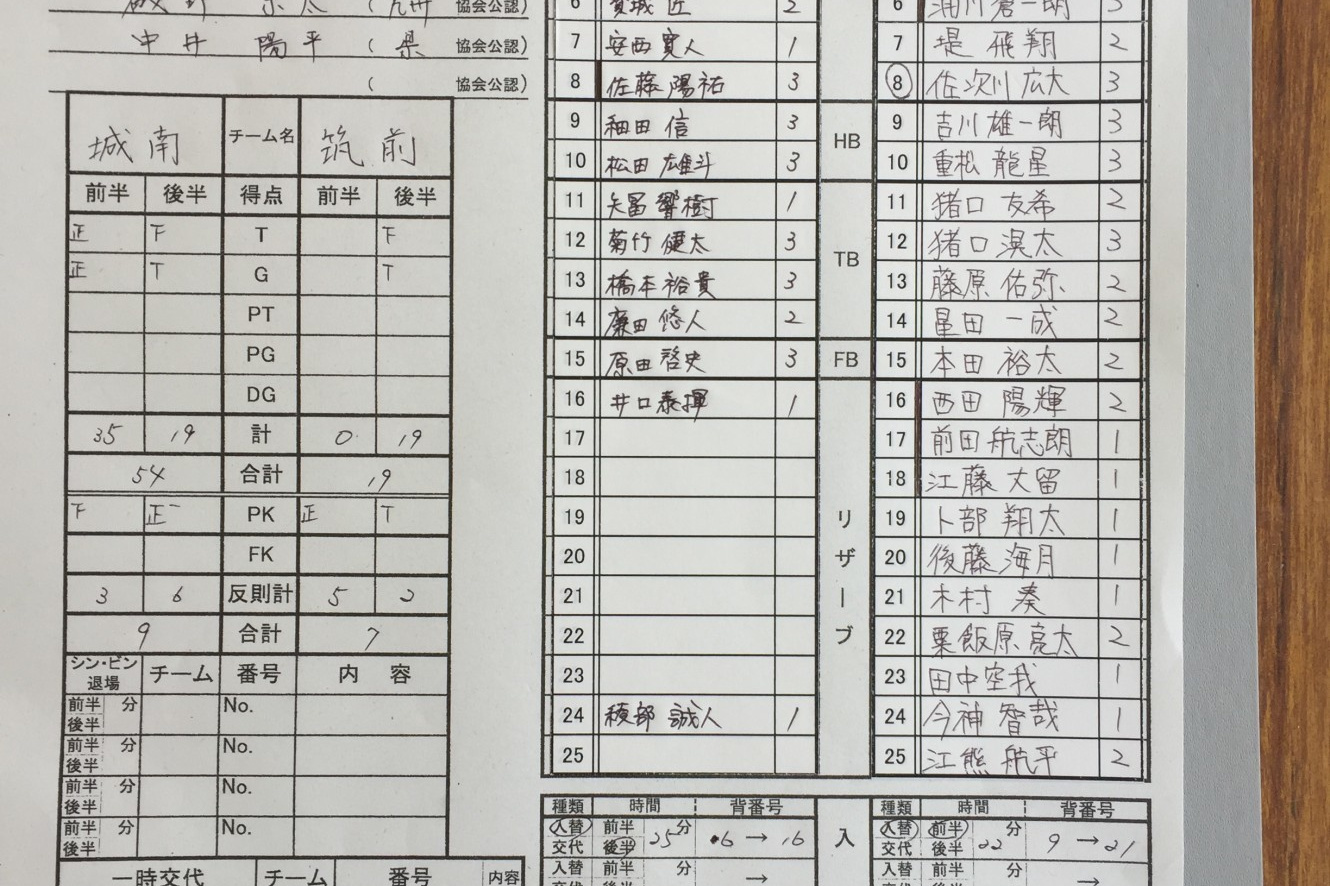 協会公認）
中井 陽平（ 県 協会公認）
（ 協会公認）
城南 チーム名 筑前
前半 後半 得点 前半 後半
正 下 T 下
正 T G T
PT
PG
DG
35 19 計 0 19
54 合計 19
下 正一 PK 正 T
FK
3 6 反則計 5 2
9 合計 7
シン・ビン 退場 チーム 番号 内 容
前半 分 No.
後半
前半 分 No.
後半
前半 分 No.
後半
前半 分 No.
後半
一時交代 チーム 番号 内容
6 匠 2
7 安西寛人 1
8 佐藤陽祐 3
9 和田 信 3
10 松田 雄斗 3
11 矢冨響樹 1
12 菊竹健太 3
13 橋本裕貴 3
14 廉田悠人 2
15 原田啓史 3
16 井口泰揮 1
17
18
19
20
21
22
23
24 綾部 誠人 1
25
HB
TB
FB
リザーブ
6 3
7 堤 飛翔 2
8 佐次川広大 3
9 吉川雄一朗 3
10 重松龍星 3
11 猪口友希 2
12 猪口滉太 3
13 藤原佑弥 2
14 星田一成 2
15 本田裕太 2
16 西田陽輝 2
17 前田航志朗 1
18 江藤丈留 1
19 卜部翔太 1
20 後藤海月 1
21 木村 湊 1
22 粟飯原亮太 2
23 田中空我 1
24 今神智哉 1
25 江熊航平 2
種類 時間 背番号
入替 前半 25 分 6 → 16
交代 後半
入替 前半 分 →
入
種類 時間 背番号
入替 前半 22 分 9 → 21
交代 後半
入替 前半 分 →